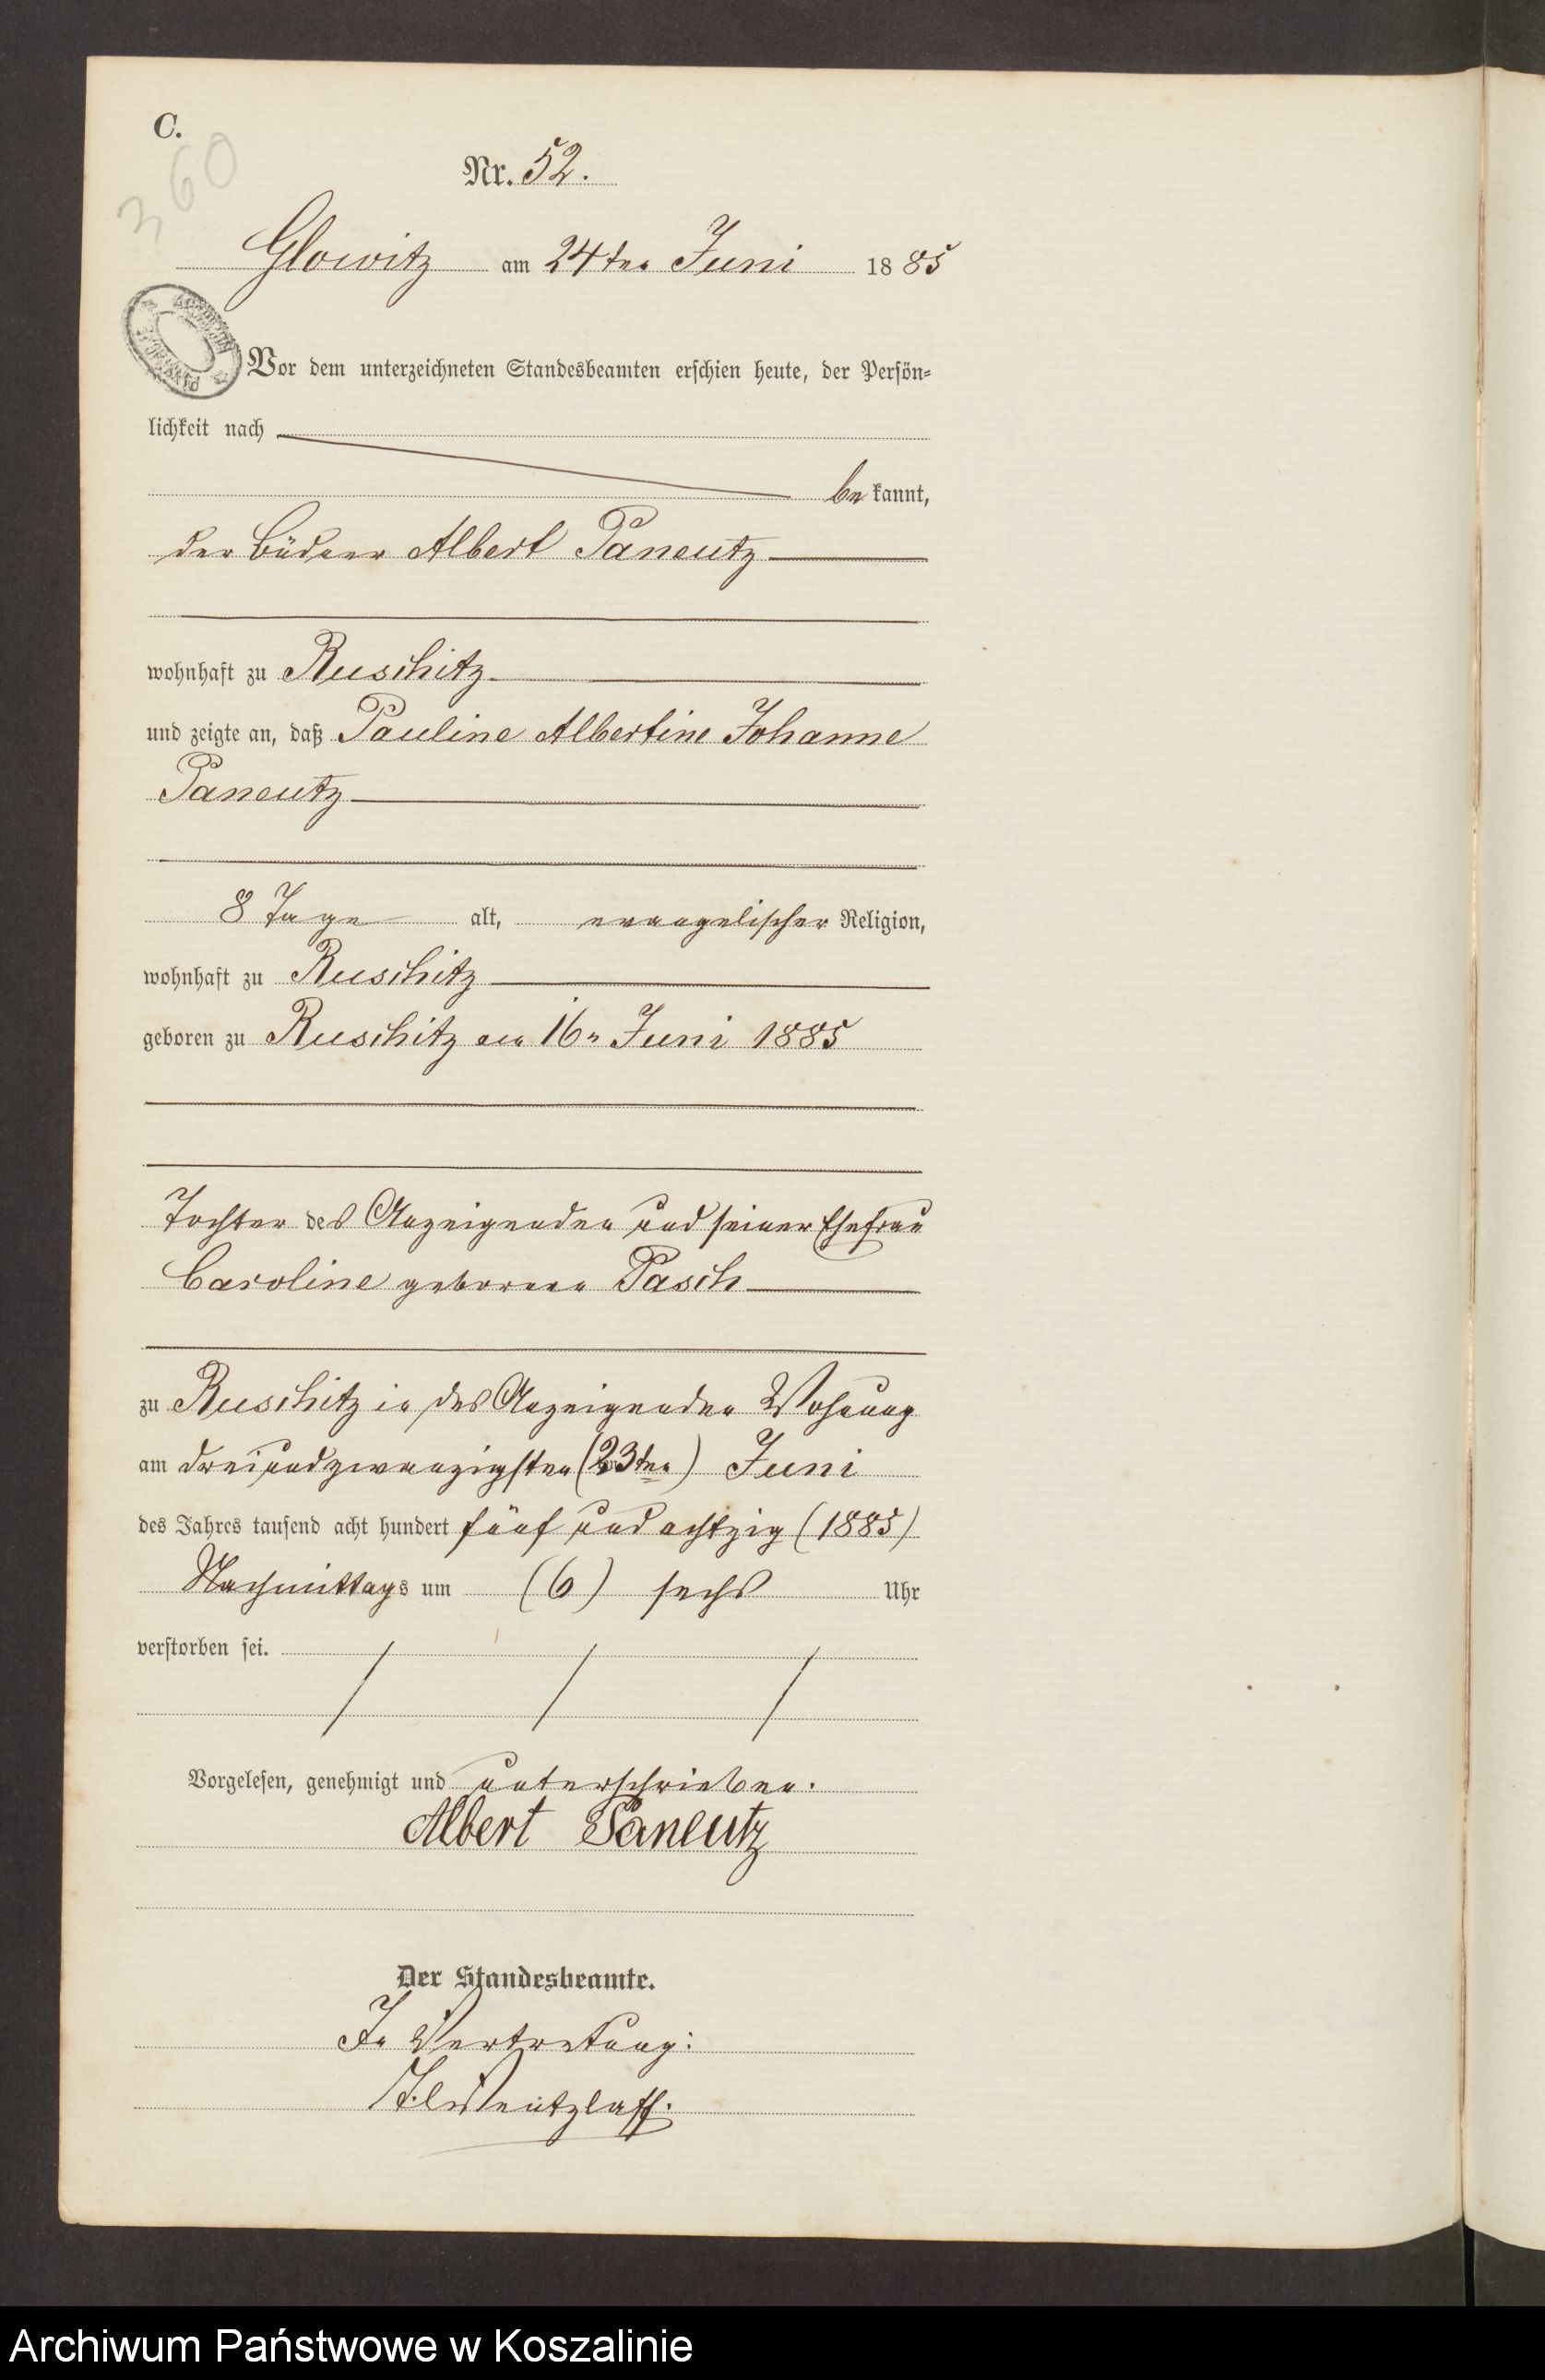 C.
360
Nr. 52.
Glowitz am 24ten Juni 1885
Vor dem unterzeichneten Standesbeamten erschien heute, der Persön-
lichkeit nach
bekannt,
der Büdner Albert Paneutz
wohnhaft zu Ruschitz
und zeigte an, daß Pauline Albertine Johanne
Paneutz
8 Tage alt, evangelischer Religion,
wohnhaft zu Ruschitz
geboren zu Ruschitz am 16n Juni 1885
Tochter des Anzeigenden und seiner Ehefrau
Caroline geborenen Pasch
zu Ruschitz in des Anzeigenden Wohnung
am dreiundzwanzigsten (23ten) Juni
des Jahres tausend acht hundert fünf und achtzig (1885)
Nachmittags um (6) sechs Uhr
verstorben sei.
Vorgelesen, genehmigt und unterschrieben.
Albert Paneutz
Der Standesbeamte.
In Vertretung:
Archiwum Państwowe w Koszalinie